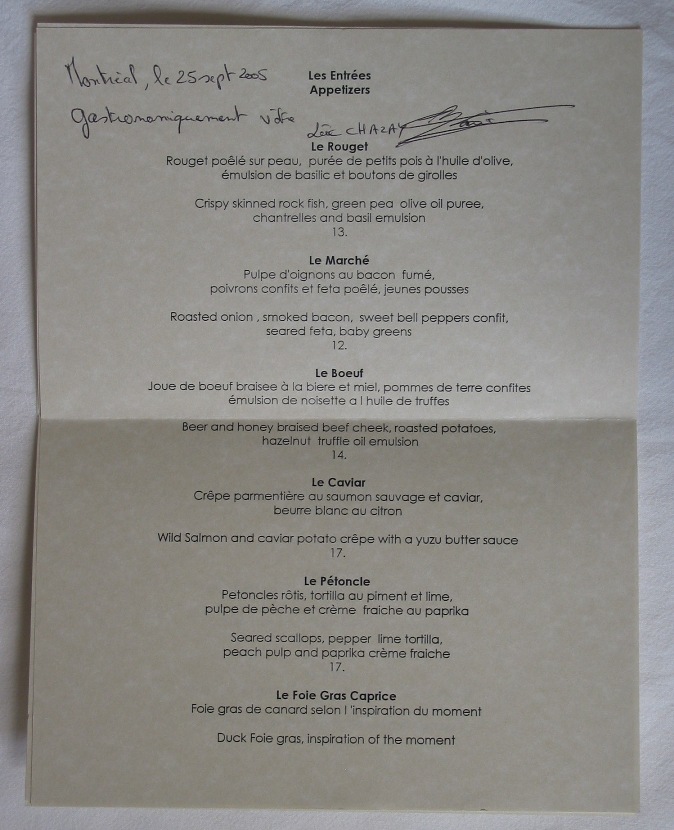 Montréal, le 25 sept 2005
Les Entrées
Appetizers
gastronomiquement vôtre
Loïc CHAZAY
Le Rouget
Rouget poêlé sur peau, purée de petits pois à l'huile d'olive,
émulsion de basilic et boutons de girolles
Crispy skinned rock fish, green pea olive oil puree,
chantrelles and basil emulsion
13.
Le Marché
Pulpe d'oignons au bacon fumé,
poivrons confits et feta poêlé, jeunes pousses
Roasted onion , smoked bacon, sweet bell peppers confit,
seared feta, baby greens
12.
Le Boeuf
Joue de boeuf braisee à la biere et miel, pommes de terre confites
émulsion de noisette a l huile de truffes
Beer and honey braised beef cheek, roasted potatoes,
hazelnut truffle oil emulsion
14.
Le Caviar
Crêpe parmentière au saumon sauvage et caviar,
beurre blanc au citron
Wild Salmon and caviar potato crêpe with a yuzu butter sauce
17.
Le Pétoncle
Petoncles rôtis, tortilla au piment et lime,
pulpe de pèche et crème fraiche au paprika
Seared scallops, pepper lime tortilla,
peach pulp and paprika crème fraiche
17.
Le Foie Gras Caprice
Foie gras de canard selon l 'inspiration du moment
Duck Foie gras, inspiration of the moment